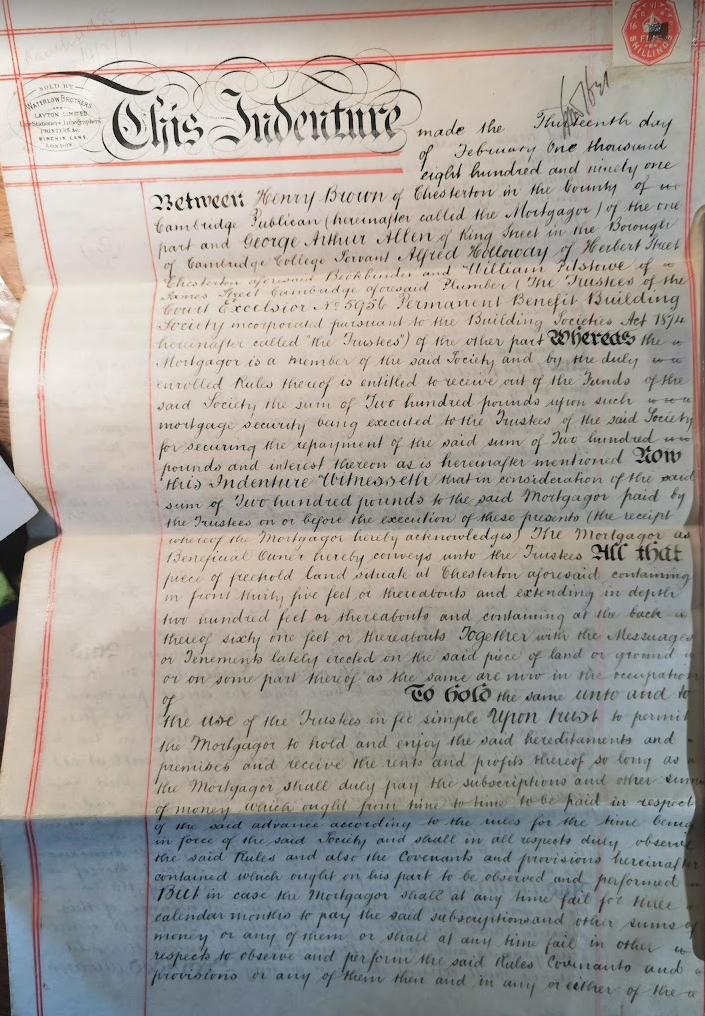 SOLD BY
WATERLOW BROTHERS
AND
LAYTON, LIMITED,
Law Stationers, Lithographers
PRINTERS &c
BIRCHIN LANE
LONDON
SHILLINGS
This Indenture made the Thirteenth day
of February One thousand
eight hundred and ninety one
Between Henry Brown of Chesterton in the County of
Cambridge Publican (hereinafter called the Mortgagor) of the one
part and George Arthur Allen of King Street in the Borough
of Cambridge College Servant Alfred Holloway of Herbert Street
Chesterton aforesaid Bookbinder and William Pilstowe of
James Street Cambridge aforesaid Plumber (The Trustees of the
Court Excelsior No 5956 Permanent Benefit Building
Society incorporated pursuant to the Building Societies Act 1874
hereinafter called "the Trustees") of the other part Whereas the
Mortgagor is a member of the said Society and by the duly
enrolled Rules thereof is entitled to receive out of the Funds of the
said Society the sum of Two hundred pounds upon such
mortgage security being executed to the Trustees of the said Society
for securing the repayment of the said sum of Two hundred
pounds and interest thereon as is hereinafter mentioned Now
this Indenture Witnesseth that in consideration of the said
sum of Two hundred pounds to the said Mortgagor paid by
the Trustees on or before the execution of these presents (the receipt
whereof the Mortgagor hereby acknowledges) The Mortgagor as
Beneficial Owner hereby conveys unto the Trustees All that
piece of freehold land situate at Chesterton aforesaid containing
in front thirty five feet or thereabouts and extending in depth
two hundred feet or thereabouts and containing at the back
thereof sixty one feet or thereabouts Together with the Messuages
or Tenements lately erected on the said piece of land or ground
or on some part thereof as the same are now in the occupation
of To hold the same unto and to
the use of the Trustees in fee simple Upon trust to permit
the Mortgagor to hold and enjoy the said hereditaments and
premises and receive the rents and profits thereof so long as
the Mortgagor shall duly pay the subscriptions and other sums
of money which ought from time to time to be paid in respect
of the said advance according to the rules for the time being
in force of the said Society and shall in all respects duly observe
the said Rules and also the Covenants and provisions hereinafter
contained which ought on his part to be observed and performed
But in case the Mortgagor shall at any time fail for three
calendar months to pay the said subscriptions and other sums of
money or any of them or shall at any time fail in other
respects to observe and perform the said Rules Covenants and
provisions or any of them then and in any or either of the